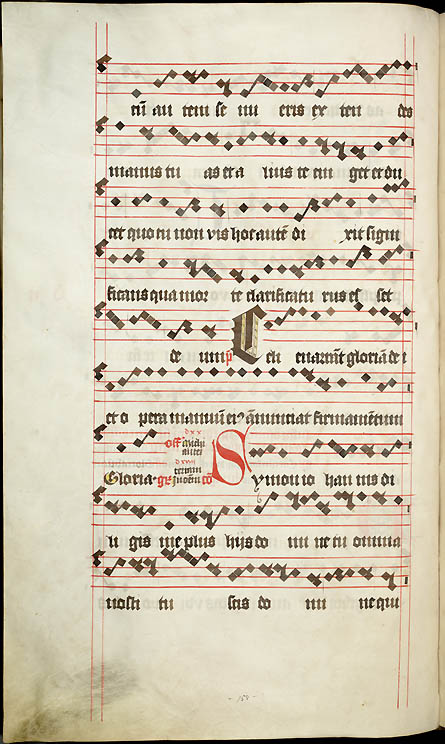 cũ au tem se nu eris ex ten des
manus tu as et a lius te cin get et du
cet quo tu non vis hoc autē di xit signi
ficans qua mor te clarificatu rus es set
de um p̄s Celi enarrāt gloriā de i
et o pera manuū ei⁹ ānunciat firmamētum
Gloria
Symon io han nis di
li gis me plus hijs do mi ne tu omnia
nosti tu scis do mi ne qui